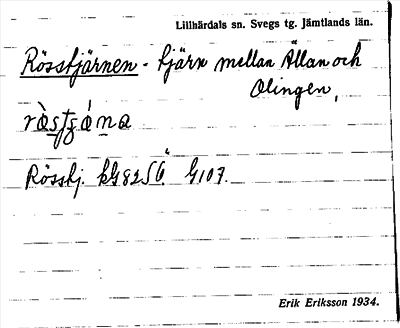 Lillhärdals sn. Svegs tg. Jämtlands län.
Rösstjärnen - tjärn mellan Ällan och
Olingen,
Rösstj. kG8256 G107.
Erik Eriksson 1934.